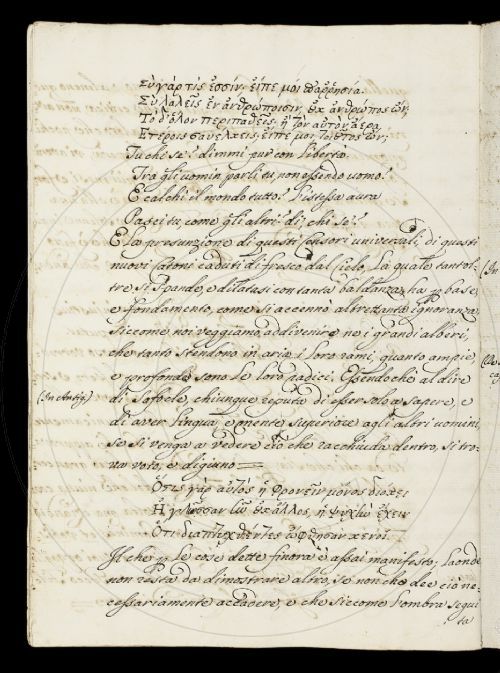 Σὺ γὰρ τίς ἐσσίν; εἶπέ μοι παῤῥησία.
Σὺ λαλεῖς ἐν ἀνθρώποισιν, ἐκ ἀνθρώπος ὤν;
Τὸ δ' ὅλον περιπατεῖς, ἢ τὸν αὐτὸν ἀέρα
Ἑτέροις
Tu chi se'? dimmi pur con libertà
Tra gli uomin parli tu, non essendo uomo?
E calchi il mondo tutto? L'istessa aura
Pasci tu, come gli altri? di; chi se'?
E la presunzione di questi Censori universali, di questi
nuovi Catoni caduti di fresco dal Cielo, la quale tant'ol-
tre si spande, e dilatasi con tanta baldanza, ha per base,
e fondamento, come si accennò altrettanta ignoranza,
Siccome noi veggiamo addivenire ne' grandi alberi,
che tanto stendono in aria i loro rami, quanto ampie,
e profonde sono le loro radici. Essendochè al dire
(In Antig.) di Sofocle, chiunque reputa di esser solo a sapere, e
di aver lingua, e mente superiore agli altri uomini,
se si venga a vedere ciò che racchiuda dentro, si tro-
va voto, e digiuno =
Ὅστις γὰρ αὐτὸς ἢ φρονεῖν μόνος δοκεῖ
Ἢ γλῶσσαν ἣν ἐκ ἄλλος, ἢ ψυχὴν ἔχειν
Οὗτοι διαπτυχθέντες ὤφθησαν κενοί.
Il che per le cose dette finora è assai manifesto; Laonde
non resta da dimostrare altro, se non che dee ciò ne-
cessariamente accadere, e che siccome l'ombra seguì
ta